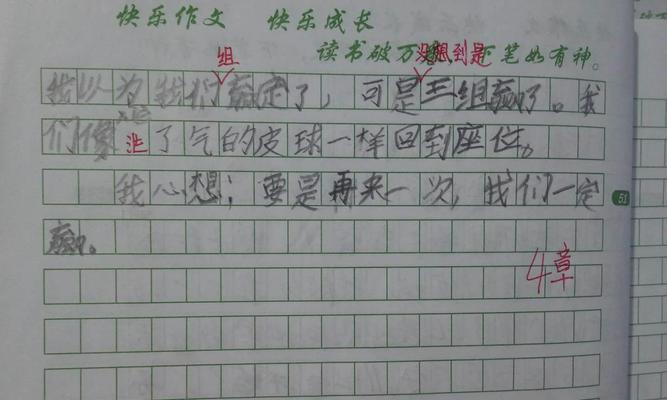 快乐作文 快乐成长
读书破万 笔如有神。
组
没想到是
我以为我们赢定了，可是三组赢了。我
们像 泄了气的皮球一样回到座位。
我心想；要是再来一次，我们一定
赢。
51
4章